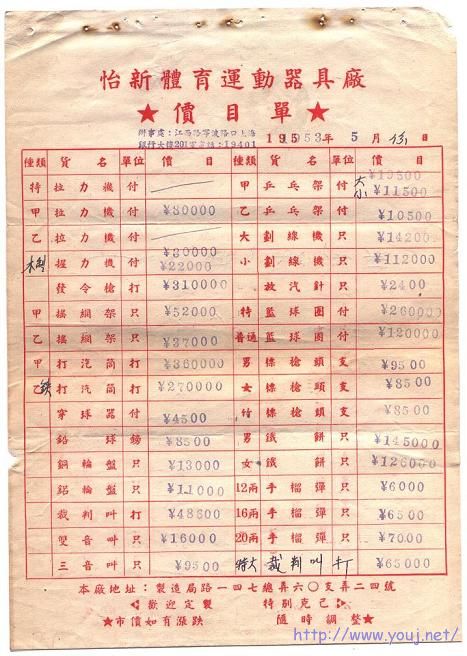 怡新體育運動器具廠
★價目單★
辦事處：江西路寧波路口上海
銀行大樓201室 電話：19401
1953年 5月 日
種類 貨名 單位 價目 種類 貨名 單位 價目
特 拉力機 付 甲 乒乓架 付 大 ¥19500 小 ¥11500
甲 拉力機 付 ¥80000 乙 乒乓架 付 ¥10500
乙 拉力機 付 大 劃線機 只 ¥142000
木製 握力機 付 ¥30000 ¥22000 小 劃線機 只 ¥112000
發令槍 打 ¥310000 放汽針 只 ¥2400
甲 搖網架 只 ¥52000 特 籃球圈 付 ¥260000
乙 搖網架 只 ¥37000 普通 籃球圈 付 ¥120000
甲 打汽筒 打 ¥360000 男 標槍頭 支 ¥9500
乙鉄 打汽筒 打 ¥270000 女 標槍頭 支 ¥8500
穿球器 付 ¥4500 竹 標槍頭 支 ¥8500
鉛球 鎊 ¥8500 男 鐵餅 只 ¥145000
銅輪盤 只 ¥13000 女 鐵餅 只 ¥126000
鋁輪盤 只 ¥11000 12兩 手榴彈 只 ¥6000
裁判叫 打 ¥48600 16兩 手榴彈 只 ¥6500
雙音叫 只 ¥16000 20兩 手榴彈 只 ¥7000
三音叫 只 ¥9500 特大 裁判叫 打 ¥65000
本廠地址：製造局路一四七總弄六〇支弄二四號
歡迎定製 特別克己
★市價如有漲跌 隨時調整★
http://www.youj.net/